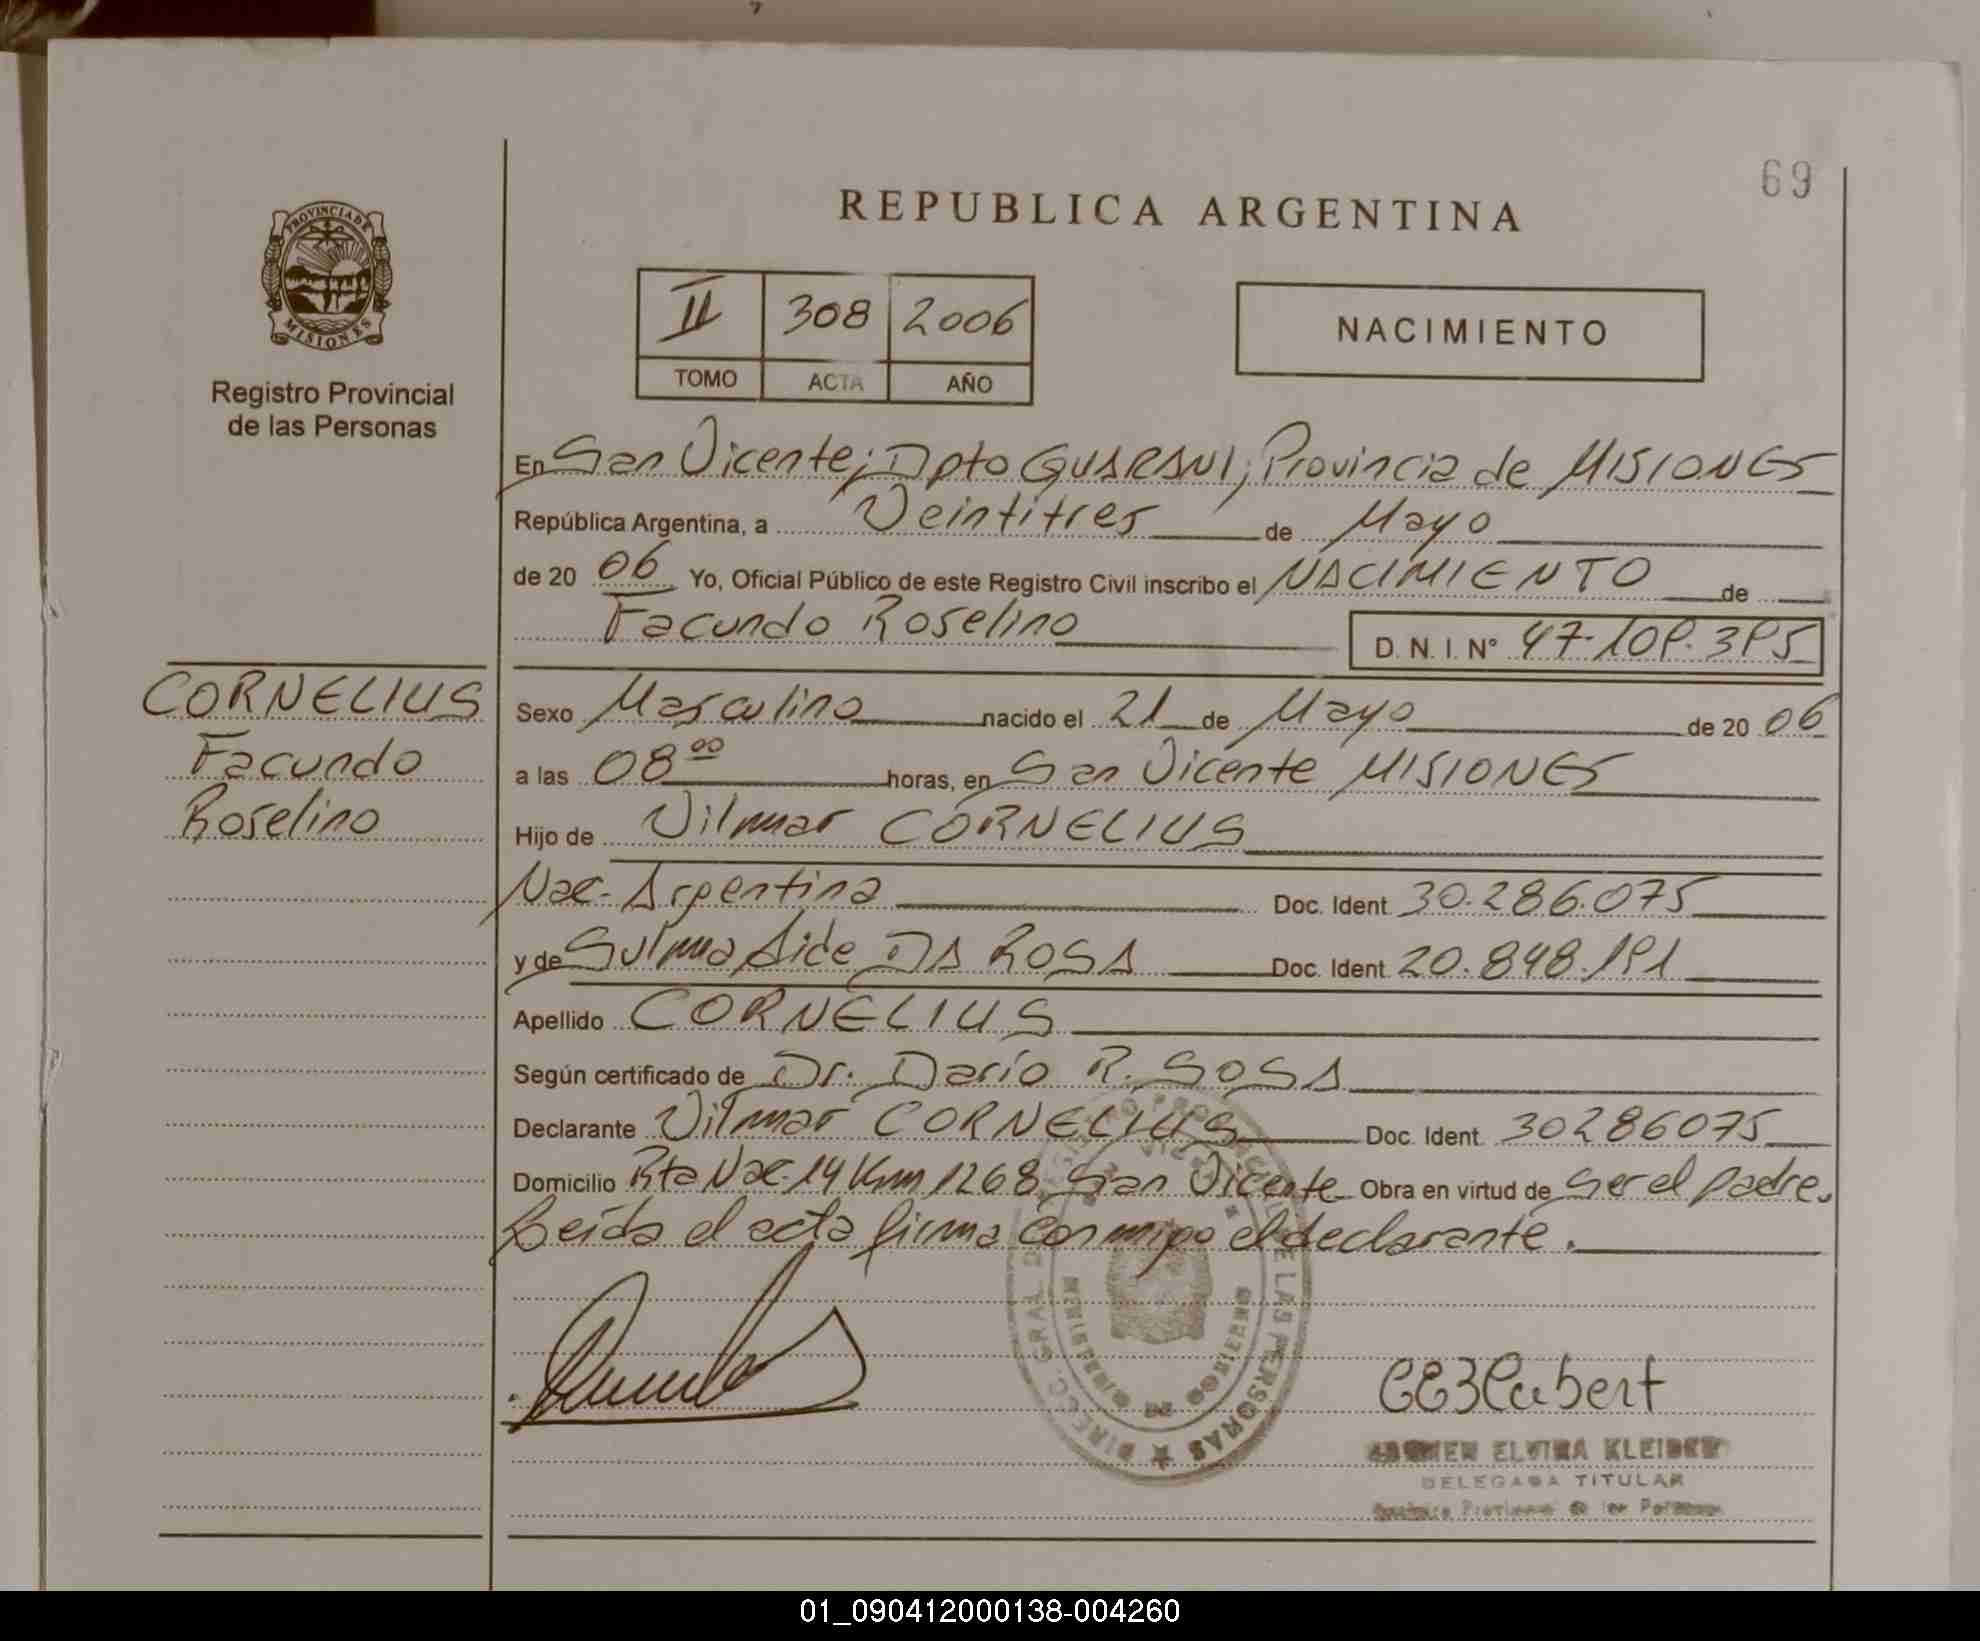 69
REPUBLICA ARGENTINA
PROVINCIA DE
MISIONES
Registro Provincial
de las Personas
II 308 2006
TOMO ACTA AÑO
NACIMIENTO
En San Vicente; Dpto GUARANI, Provincia de MISIONES
República Argentina, a Veintitres de Mayo
de 20 06 Yo, Oficial Público de este Registro Civil inscribo el NACIMIENTO de
Facundo Roselino
D. N. I. Nº 47.109.395
CORNELIUS
Facundo
Roselino
Sexo Masculino nacido el 21 de Mayo de 20 06
a las 08 00 horas, en San Vicente MISIONES
Hijo de Vilmar CORNELIUS
Nac. Argentina Doc. Ident. 30.286.075
y de Sulma Aide DA ROSA Doc. Ident. 20.848.191
Apellido CORNELIUS
Según certificado de Dr. Darío R. SOSA
Declarante Vilmar CORNELIUS Doc. Ident. 30286075
Domicilio Rta Nac. 14 Km 1268 San Vicente Obra en virtud de ser el padre.
Leída el acta firma conmigo el declarante.
DIRECC. GRAL DE LAS PERSONAS
ELVIRA KLEIBER
DELEGADA TITULAR
01_090412000138-004260